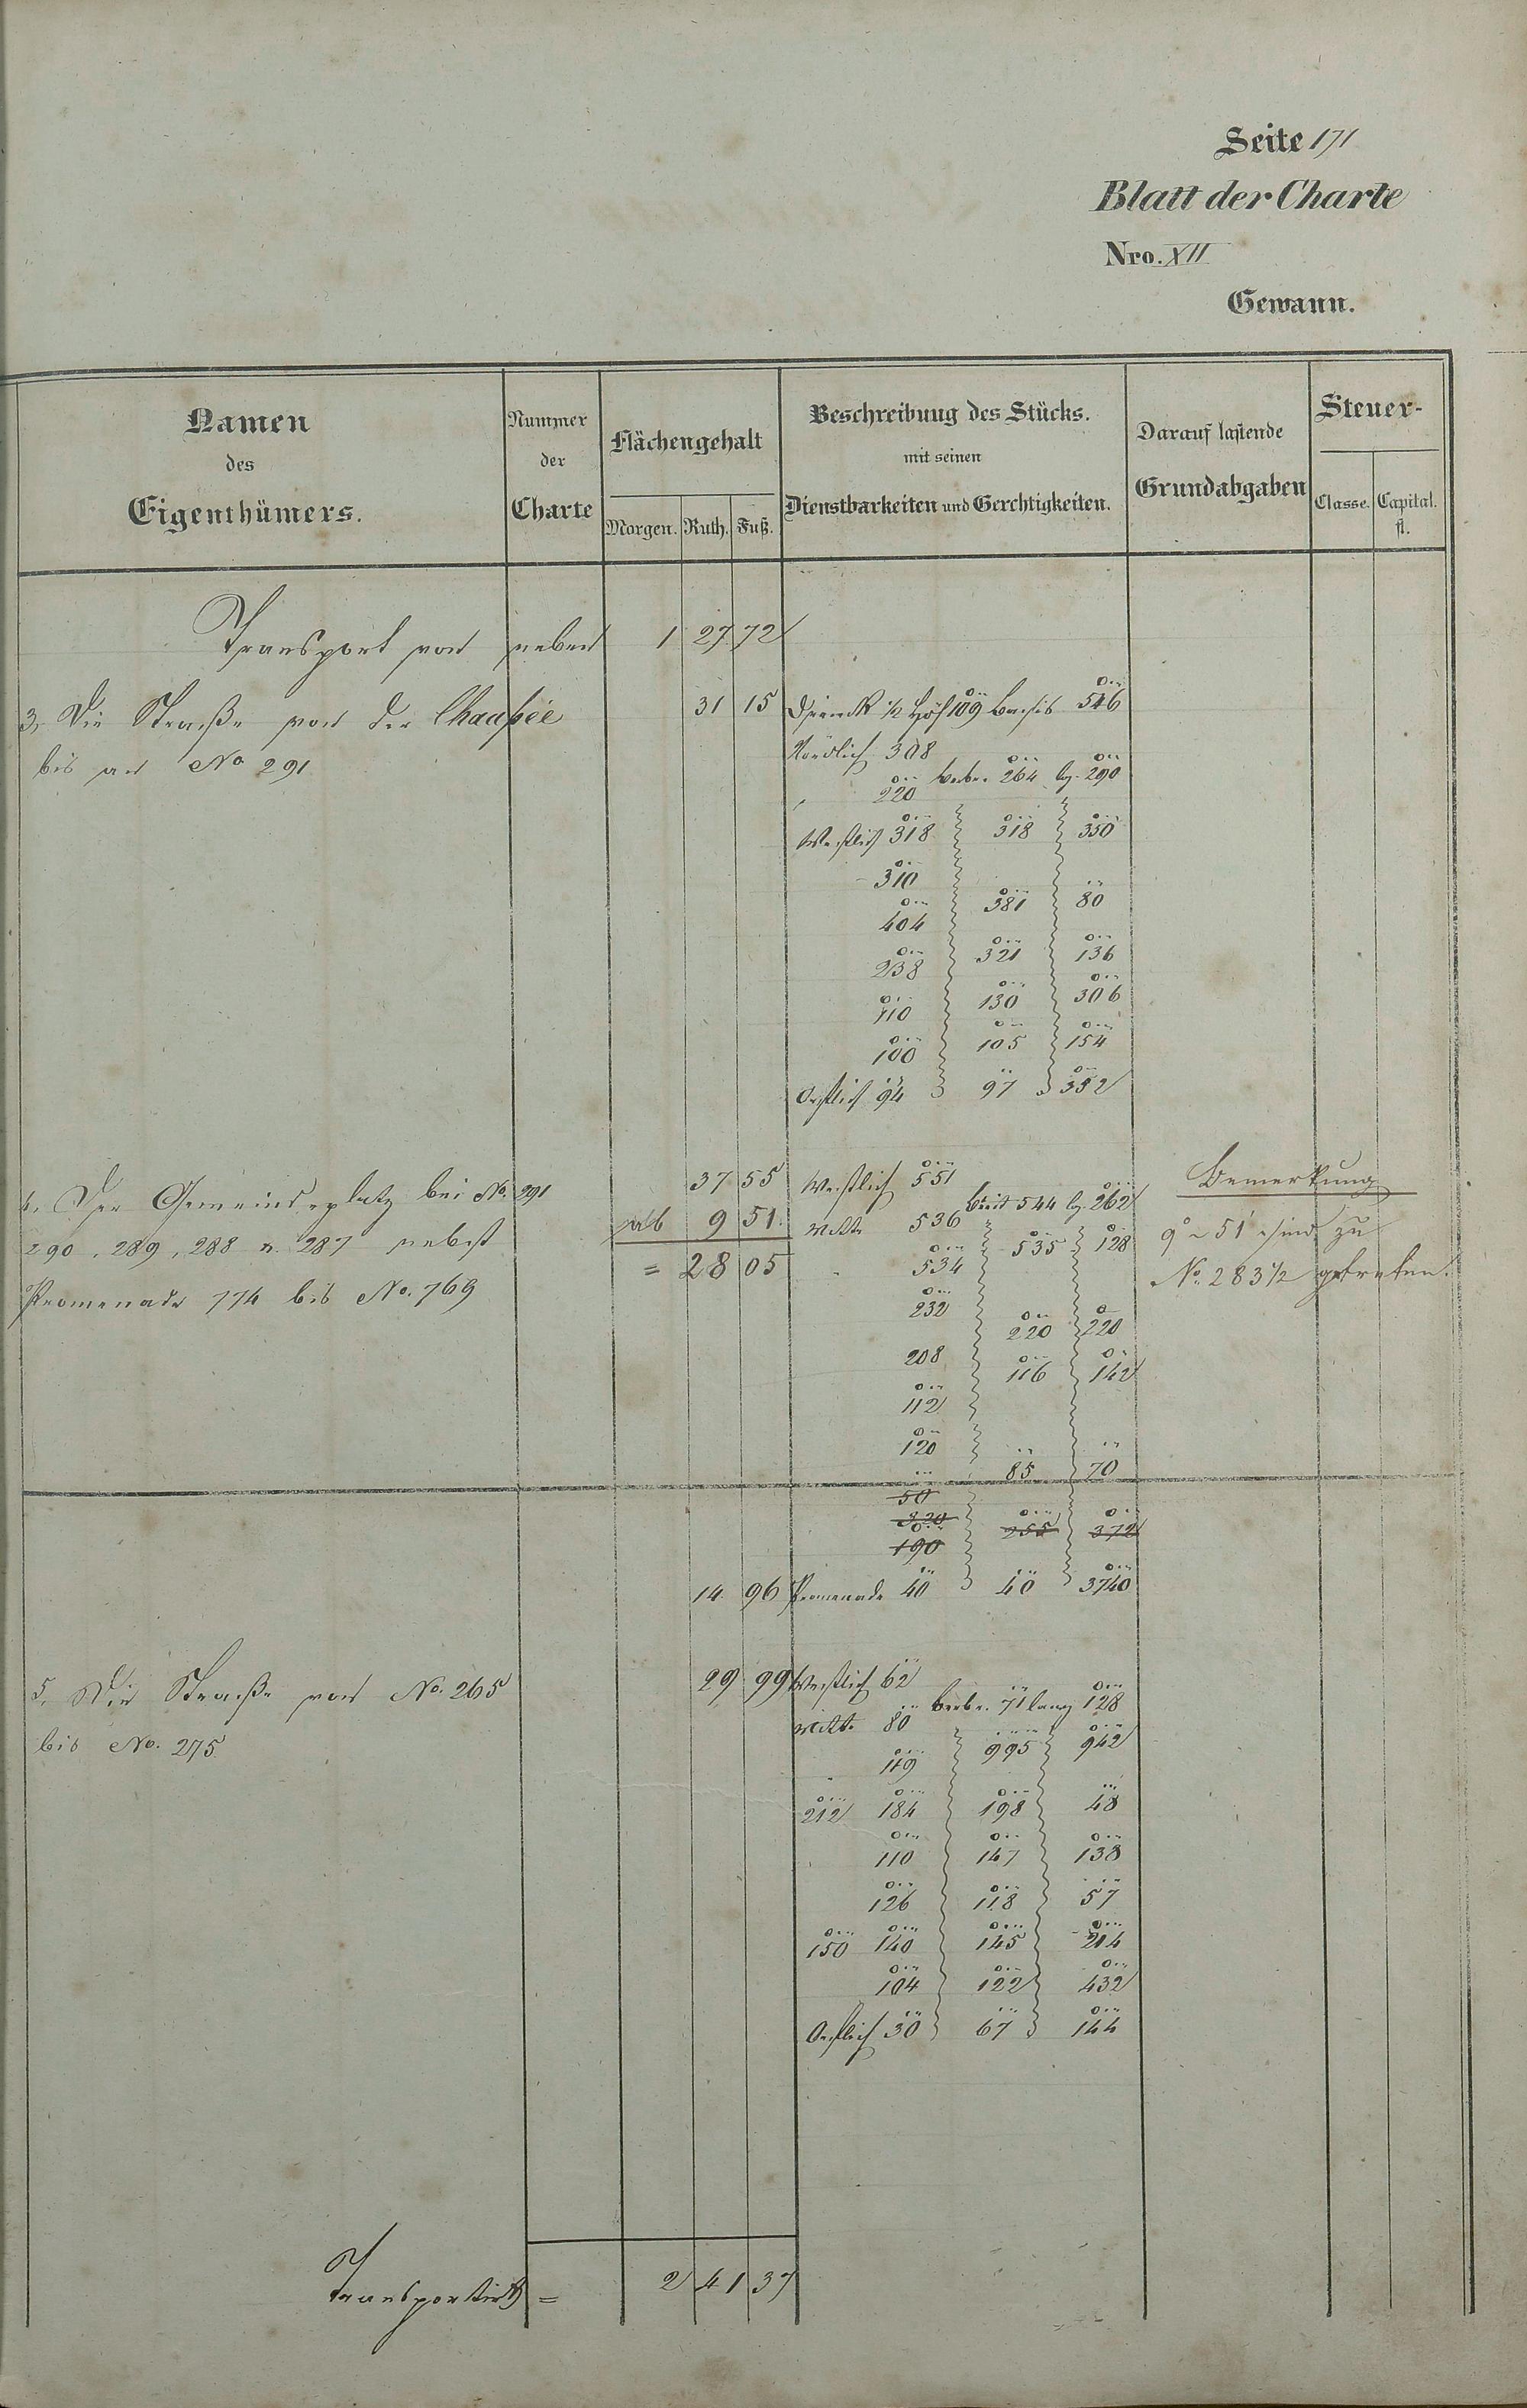 Seite 171
Blatt der Charte
Nro. XII
Gewann.
Namen des Eigenthümers.
Nummer der Charte
Flächengehalt
Morgen. Ruth. Fuß.
Beschreibung des Stücks. mit seinen Dienstbarkeiten und Gerchtigkeiten.
Darauf lastende Grundabgaben
Steuer-
Classe. Capital. fl.
Transport von neben 1 27 72
3, Die Straße von der Chaussée 31 15 Dreieck ½ Höh 109 Basis 546
bis an No 291 Nördlich 308
220 verbr. 264 lg. 290
Westlich 318 318 350
310
404 381 80
238 321 136
110 130 306
100 105 154
Oestlich 94 97 352
4. Der Gemeindeplatz bei No. 291 37 55 Westlich 551 Bemerkung
290, 289, 288 u. 287 nebst ab 9 51. Mitte 536 breit 544 lg. 262 9° 51' sind zu
Promenade 774 bis No. 769 = 28 05 534 535 128 No. 283½ getreten.
232
208 220 220
112 116 142
120
50 85 70
320
190 255 372
14 96 Promenade 40 40 3740
5, Die Straße von No. 265 29 99 Westlich 62
bis No. 275 Mitte 80 verbr. 71 lang 128
119 995 942
212 184 198 48
110 147 138
126 118 57
150 140 145 214
104 122 432
Oestlich 30 67 144
Transportirt = 2 41 37